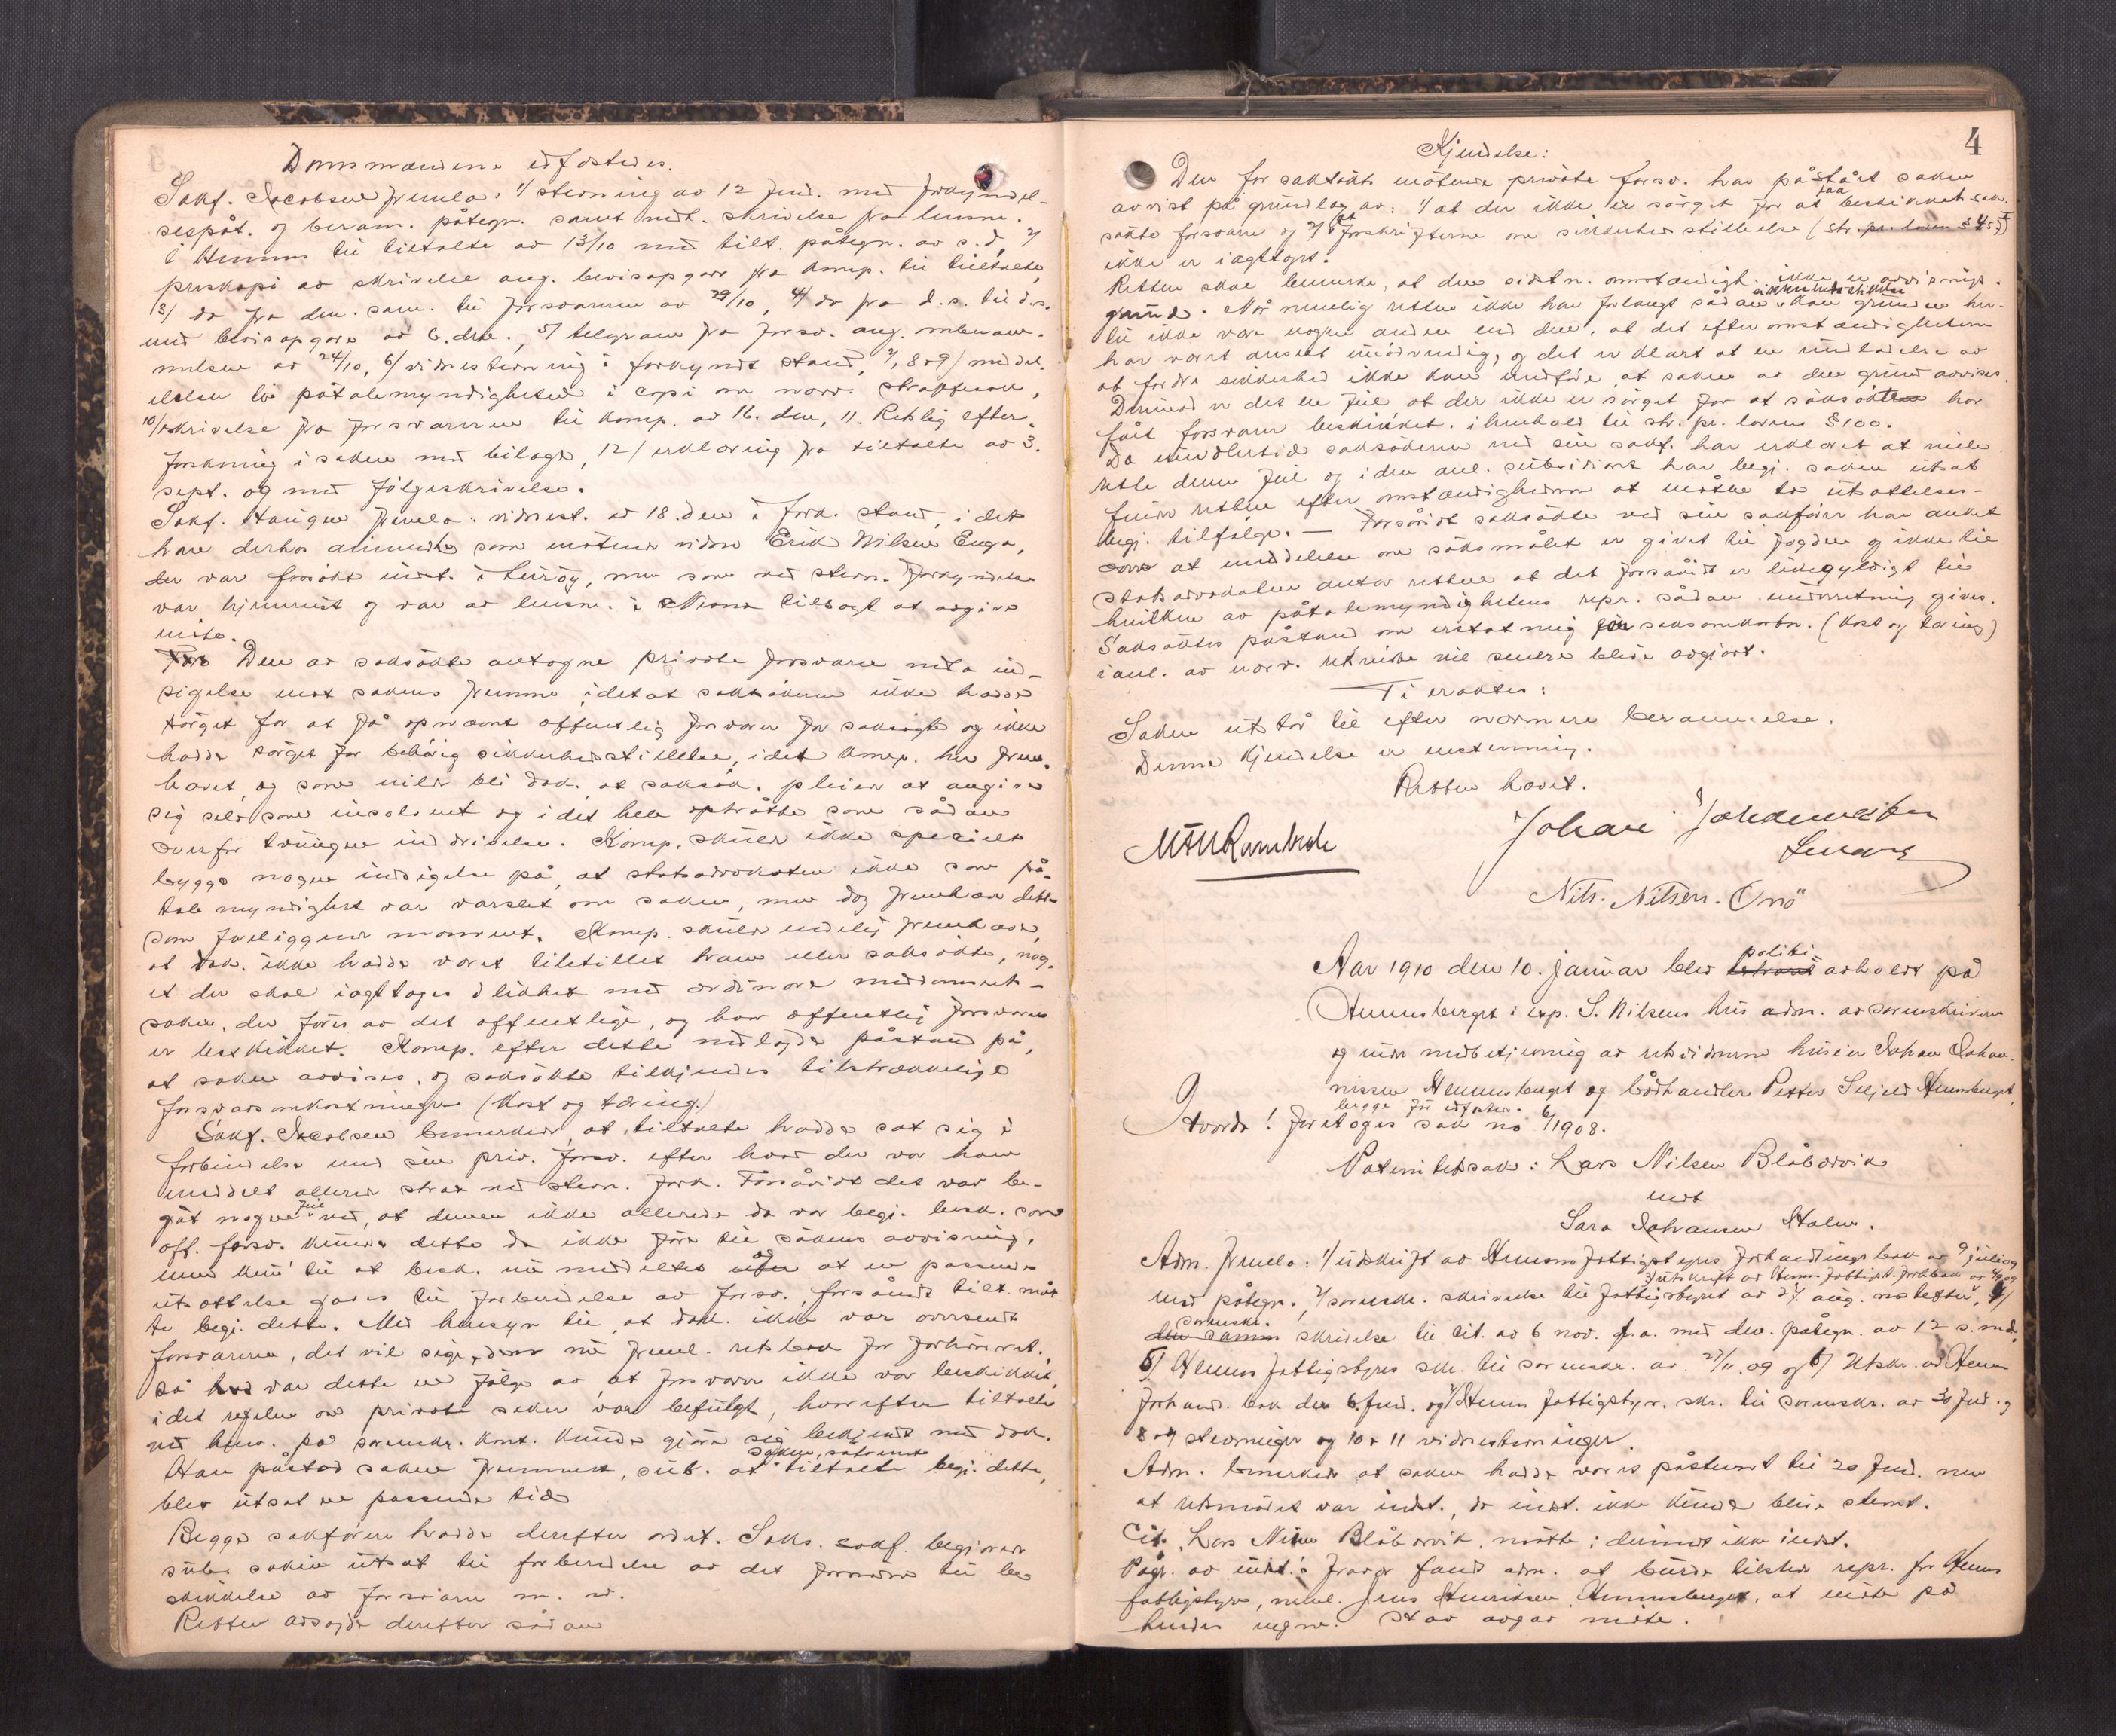 Domsmændene edfæstedes.
Sakf. Jacobsen freml. 1/ stevning av 12 med forkyndel-
sespåt. og beram. påtegn. samt skrivelse fra lensm.
i Hemnes til tiltalte av 13/10 med tilt. påtegn. av s.d., 2/
preskopi av skrivelse ang. bevisopgave fra komp. til tiltalte,
3/ do fra den sam. til forsvareren av 29/10, 4/ do fra d.s. til d.s.
med bevisopgave av 6. dse., 5/ telegram fra forsv. ang. omberam-
melsen av 24/10, 6/ vidnestevning i forkyndt stand, 7, 8 og 9/ meddel-
elsen til påtalemyndigheten i copi om straffesak,
10/ skrivelse fra forsvareren til komp. av 16. den, 11. Retslig efter-
forskning i saken med bilage, 12/ erklæring fra tiltalte av 3.
sept. og med følgeskrivelse.
Sakf. Haugen freml. vidnest. av 18. den i fork. stand, i det
han derhos anmeldte som møtende vidne Erik Nilsen Enga,
der var forsøkt indst. i Lurøy, men som ved stevn. forkyndelse
var hjemreist og var av lensm. i tilsagt at avgive
møte.
Den av saksøkte antagne private forsvarer ned la ind-
sigelse mot sakens fremme, idet at saksøkeren ikke hadde
sørget for at få opnævnt offentlig forsvarer for saksøgte og ikke
hadde sørget for behørig sikkerhedsstillelse, idet komp. har frem-
havet, og som vilde bli dok. at saksøk. pleier at angive
sig selv som insolvent og i det hele optrådte som sådan
overfor tvungen inddrivelse. Komp. skulde ikke specielt
bygge nogen indsigelse på, at statsadvokaten ikke som på-
talemyndighet var varslet om saken, men dog fremhæve dette
som foreliggende moment. Komp. skulde endelig fremhæve,
at dok. ikke hadde været tilstillet ham eller saksøkte, nog-
et der skal iagttages i likhet med ordinære meddomsrets-
saker, der føres av det offentlige, og hvor offentlig forsvarer
er beskikket. Komp. efter dette nedlagde påstand på,
at saken avvises, og saksøkte tilkjendes tilstrækkelige
forsvarsomkostninger (kost og tæring.)
Sakf. Jacobsen bemerket, at tiltalte hadde sat sig i
forbindelse med sin priv. forsv. efter hvad der var ham
meddelt allerede straks ved stevn. fork. Forsåvidt det var be-
gåt nogen feil ved, at denne ikke allerede da var begj. besk. som
off. forsv. kunde dette da ikke føre til sakens avvisning,
men kun til at besk. nu meddeltes og at en passende
utsættelse gaves til forberedelse av forsv., forsåvidt tilt. måt-
te begj. dette. Med hensyn til, at dok. ikke var oversendt
forsvareren, det vil sige, dem nu freml. retsbok for forhørsret.,
så var dette en følge av, at forsvarer ikke var beskikket,
idet reglene om private saker var befulgt, hvorefter tiltalte
ved henv. på sorenskr. kont. kunde gjøre sig bekjendt med dok.
Han påstod saken fremmet, sub. at saken, såfremt tiltalte begj. dette,
blev utsat en passende tid.
Begge sakførere hadde derefter ordet. Saks. sakf. begjærer
sub. saken utsat til forberedelse av det fornødne til be-
skikkelse av forsvarer m. v.
Retten avsagde derefter sådan
4
Kjendelse:
Den for saksøkte møtende private forsv. har påstået saken
avvist på grundlag av: 1/ at der ikke er sørget for at faa beskikket sak-
søkte forsvarer og 2/ at forskrifterne om sikkerhedsstillelse (str. pr. loven § 453)
ikke er iagttaget.
Retten skal bemerke, at den sidstn. omstændigh. ikke er avvisnings-
grund. Når nemlig retten ikke har forlangt sådan sikkerhedsstillelse kan grunden her-
til ikke være nogen anden end den, at det efter omstændigheterne
har været anseet unødvendig, og det er klart at en undladelse av
at fordre sikkerhed ikke kan medføre at saken av den grund avvises.
Derimod er det en feil at der ikke er sørget for at saksøkte har
fåt forsvarer beskikket i henhold til str. pr. lovens § 100.
Da imidlertid saksøkeren ved sin sakf. har erklæret at ville
rette denne feil og i den anl. subsidiært har begj. saken utsat
finder retten efter omstændighederne at måtte ta utsættelses-
begj. tilfølge. — Forsåvidt saksøkte ved sin sakfører har anket
over at meddelelse om søksmålet er givet til fogden og ikke til
statsadvokaten antar retten at det forsåvidt er likegyldigt til
hvilken av påtalemyndighetens repr. sådan underretning gives.
Saksøktes påstand om erstatning for saksomkostn. (kost og tæring)
i anl. av nærv. retsreise vil senere bli avgjort.
Ti eragtes:
Saken utstår til efter nærmere berammelse.
Denne kjendelse er enstemmig.
Retten hævet.
Johan Johannessen
Nils. Nilsen. Onø
Aar 1910 den 10. januar blev politiret avholdt på
Hemnesberget i exp. S. Nilsens hus adm. av sorenskriveren
og under medbetjening av retsvidnerne huseier Johan Johan-
nessen Hemnesberget og bådhandler Petter Seljeli Hemnesberget,
begge før edfæstet.
Hvorda! foretoges sak no 6/1908.
Paternitetssak: Lars Nilsen Blåbærvik
mot
Sara Johansen Stolm.
Adm. freml.: 1/ utskrift av Hemnes fattigstyres forhandlingsbok av 9 juli 09
3/ utskrift av Hemnes fattigst. forh.bok av
med påtegn., 2/ sorenskr. skrivelse til fattigstyret av 27. aug. næstefter, 4/
sorenskr. skrivelse til cit. av 6 nov. f.a. med dev. påtegn. av 12 s.md.
5/ Hemnes fattigstyres skr. til sorenskr. av 27/11.09 og 6/ utskr. av Hemnes
forhand. bok den 6. og 7/ Hemnes fattigstyr. skr. til sorenskr. av 30
8 og 9 stevninger og 10 & 11 vidnestevninger.
Adm. bemerket at saken hadde været påstevnt til 20 men
at retsmødet var indst., da indst. ikke kunde blive stevnt.
Cit. Lars Nilsen Blåbærvik, møtte; derimot ikke indst.
Pågr. av indst.s fravær fandt adm. at burde tilstede repr. for Hemnes
fattigstyre, nml. Jens Henriksen Hemnesberget, at møte på
hendes vegne. avgav møte.